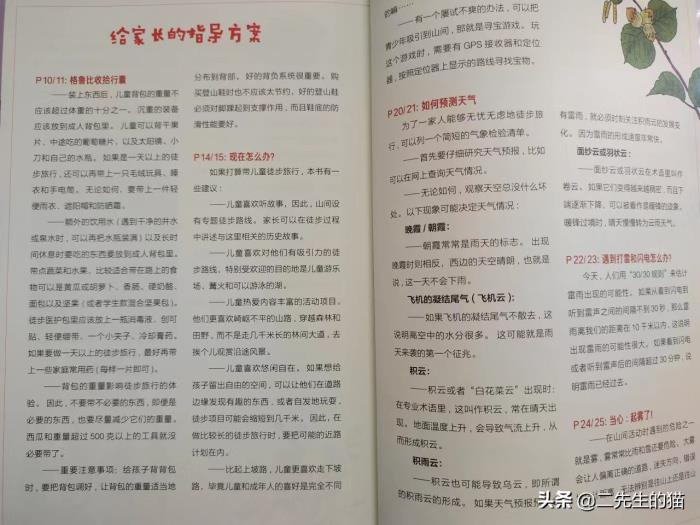 给家长的指导方案
P10/11: 格鲁比收拾行囊
——装上东西后，儿童背包的重量不
应该超过体重的十分之一。沉重的装备
应该放到成人背包里。儿童可以背干果
片、中途吃的葡萄糖片，以及太阳镜、小
刀和自己的水瓶。如果是一天以上的徒
步旅行，还可以再带上一只毛绒玩具、睡
衣和手电筒。无论如何，要带上一件轻
便雨衣、遮阳帽和防晒霜。
——额外的饮用水（遇到干净的井水
或泉水时，可以再把水瓶装满）以及长时
间休息时要吃的东西要放到成人背包里。
带点蔬菜和水果，比较适合带在路上的食
物可以是黄瓜或胡萝卜、香肠、硬奶酪、
面包以及坚果（或者学生款混合坚果包）。
徒步医护包里应该放上一瓶消毒液、创可
贴、轻便绷带、一个小夹子、冷却膏药。
如果要做一天以上的徒步旅行，最好再带
上一些家庭常用药（每样一片即可）。
——背包的重量影响徒步旅行的体
验。因此，不要带不必要的东西，即便是
必要的东西，也要尽量减少它们的重量。
西瓜和重量超过 500 克以上的工具就没
必要带了。
——重要注意事项：给孩子背背包
时，要把背包调好，让背包的重量适当地
分布到背部。好的背负系统很重要。购
买登山鞋时也不应该太节约，好的登山鞋
必须对脚踝起到支撑作用，而且鞋底的防
滑性能要好。
P14/15: 现在怎么办?
如果打算带儿童徒步旅行，本书有一
些建议：
——儿童喜欢听故事，因此，山间设
有专题徒步路线。家长可以在徒步过程
中讲述与这里相关的历史故事。
——儿童喜欢对他们有吸引力的徒
步路线，特别受欢迎的目的地是儿童游乐
场、篝火和可以游泳的湖。
——儿童热爱内容丰富的活动项目。
他们更喜欢崎岖不平的山路，穿越森林和
田野，而不是走几千米长的林间大道，去
挨个儿观赏沿途风景。
——儿童喜欢悠闲自在。如果想给
孩子留出自由的空间，可以让他们在道路
边缘发现有趣的东西，或者自发地玩耍，
徒步项目可能会缩短到几千米。因此，在
做比较长的徒步旅行时，要把可能的近路
计划在内。
——比起上坡路，儿童更喜欢走下坡
路，毕竟儿童和成年人的喜好是完全不同
——有一个屡试不爽的办法，可以把
青少年吸引到山间，那就是寻宝游戏。玩
这个游戏时，需要有 GPS 接收器和定位
器，按照定位器上显示的路线寻找宝物。
P20/21: 如何预测天气
为了一家人能够无忧无虑地徒步旅
行，可以列一个简短的气象检查清单。
——首先要仔细研究天气预报，比如
可以在网上查询天气情况。
——无论如何，观察天空总没什么坏
处。以下现象可能决定天气情况：
晚霞 / 朝霞：
——朝霞常常是雨天的标志。出现
晚霞时则相反，西边的天空晴朗，也就是
说，这一天不会下雨。
飞机的凝结尾气（飞机云）：
——如果飞机的凝结尾气不散去，这
说明高空中的水分很多。这可能就是雨
天来袭的第一个征兆。
积云：
——积云或者“白花菜云”出现时：
在专业术语里，这叫作积云，常在晴天出
现。地面温度上升，会导致气流上升，从
而形成积云。
积雨云：
——积云也可能导致乌云，即所谓
的积雨云的形成。如果天气预报预
有雷雨，就必须时刻关注积雨云的发展变
化。因为雷雨的形成速度非常快。
面纱云或羽状云：
——面纱云或羽状云在术语里叫作
卷云。如果它们变得越来越稠密，而且下
端逐渐下降，可以被看作晕模糊的边象，
暖锋过境时，晴天慢慢转为云雨天气。
P22/23: 遇到打雷和闪电怎么办?
今天，人们用“30/30 规则”来估计
雷雨出现的可能性。如果从看到闪电到
听到雷声之间的间隔不到 30 秒，那么雷
雨离我们的距离在 10 千米以内，这说明
出现雷雨的可能性很大。如果看到闪电
或者听到雷声后的间隔超过 30 分钟，说
明雷雨已经过去。
P24/25: 当心：起雾了!
——在山间活动时遇到的危险之一
就是雾，雾常常比雨和雪还要危险。大雾
会让人偏离正确的道路，迷失方向，错误
头条 @二先生的猫